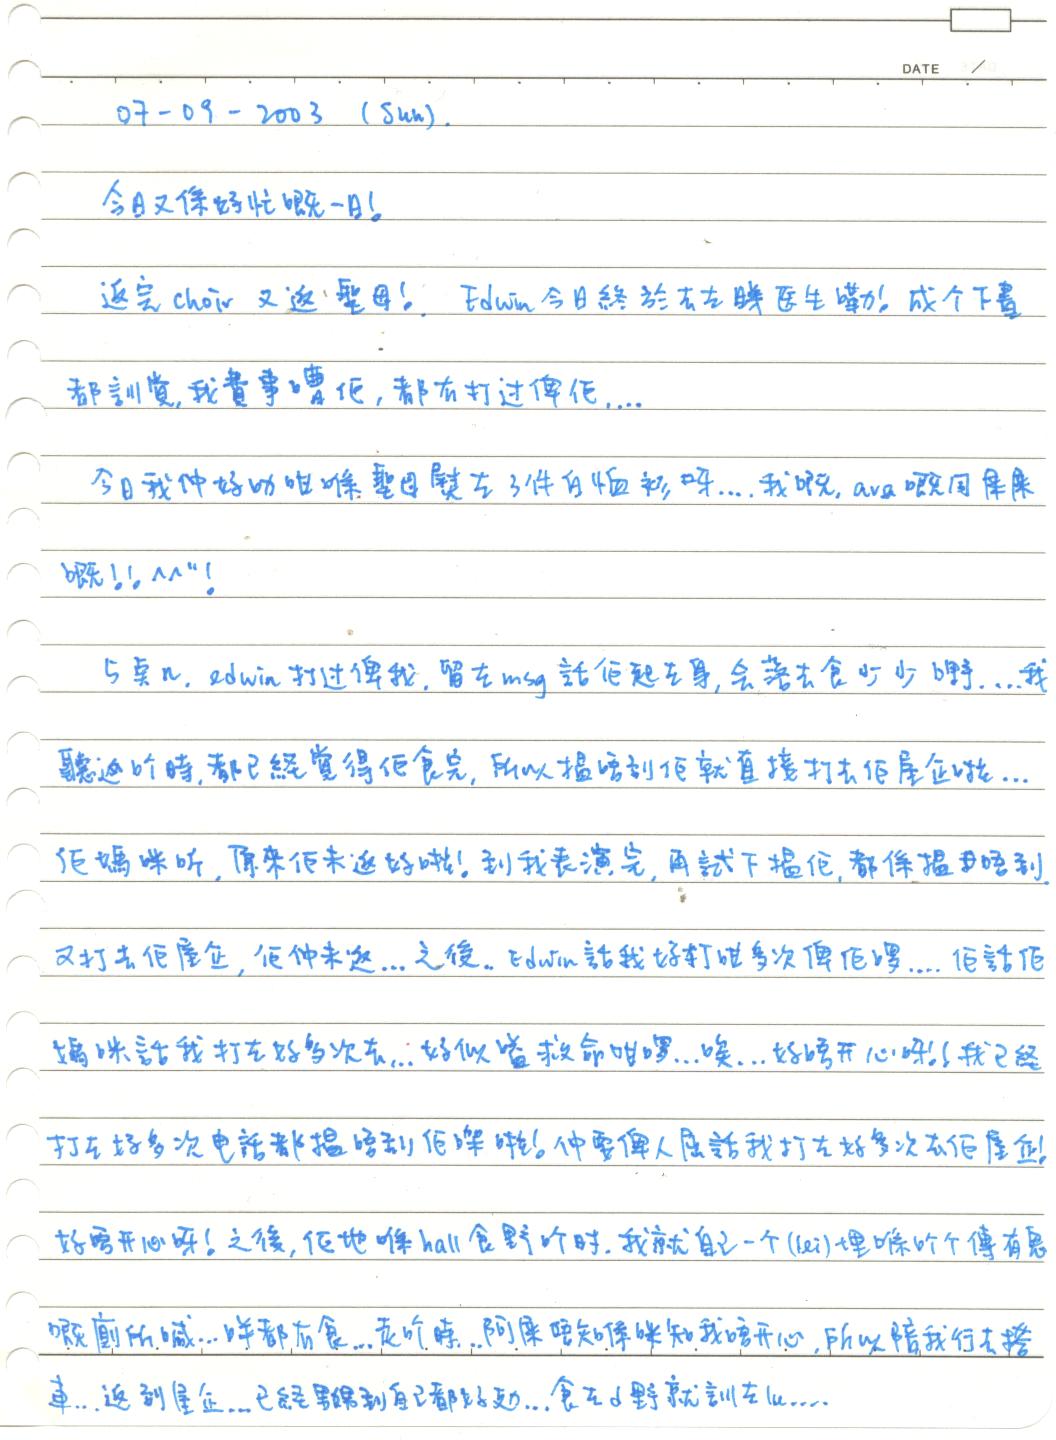 DATE /
07-09-2003 (Sun).
今日又係好忙嘅一日!
返完 choir 又返聖母!. Edwin 今日終於去左睇医生嘞! 成个下晝
都訓覺, 我費事嘈佢, 都冇打过俾佢....
今日我仲好叻咁喺聖母熨左3件白恤衫呀.... 我嘅, ava 嘅同杲杲
嘅!! ^^"!
5点几. edwin 打过俾我, 留左 msg 話佢起左身, 会落去食少少嘢....我
聽返吖時, 都已經覺得佢食完, 所以搵唔到佢就直接打去佢屋企啦...
佢媽咪听, 原來佢未返好啦! 到我表演完, 再試下搵佢, 都係搵唔到.
又打去佢屋企, 佢仲未返... 之後.. Edwin 話我好打咁多次俾佢喎.... 佢話佢
媽咪話我打左好多次去... 好似嗌救命咁喎...唉... 好唔开心呀!! 我已經
打左好多次电話都搵唔到佢㗎啦! 仲要俾人屈話我打左好多次去佢屋企!
好唔开心呀! 之後, 佢地喺 hall 食野吖时. 我就自己一个 (lei) 埋喺吖个傳有鬼
嘅廁所喊... 咩都冇食... 走吖時.. 阿杲唔知係咪知我唔开心, 所以陪我行去搭
車... 返到屋企... 已經 到自己都好劫... 食左d野就訓左lu.....